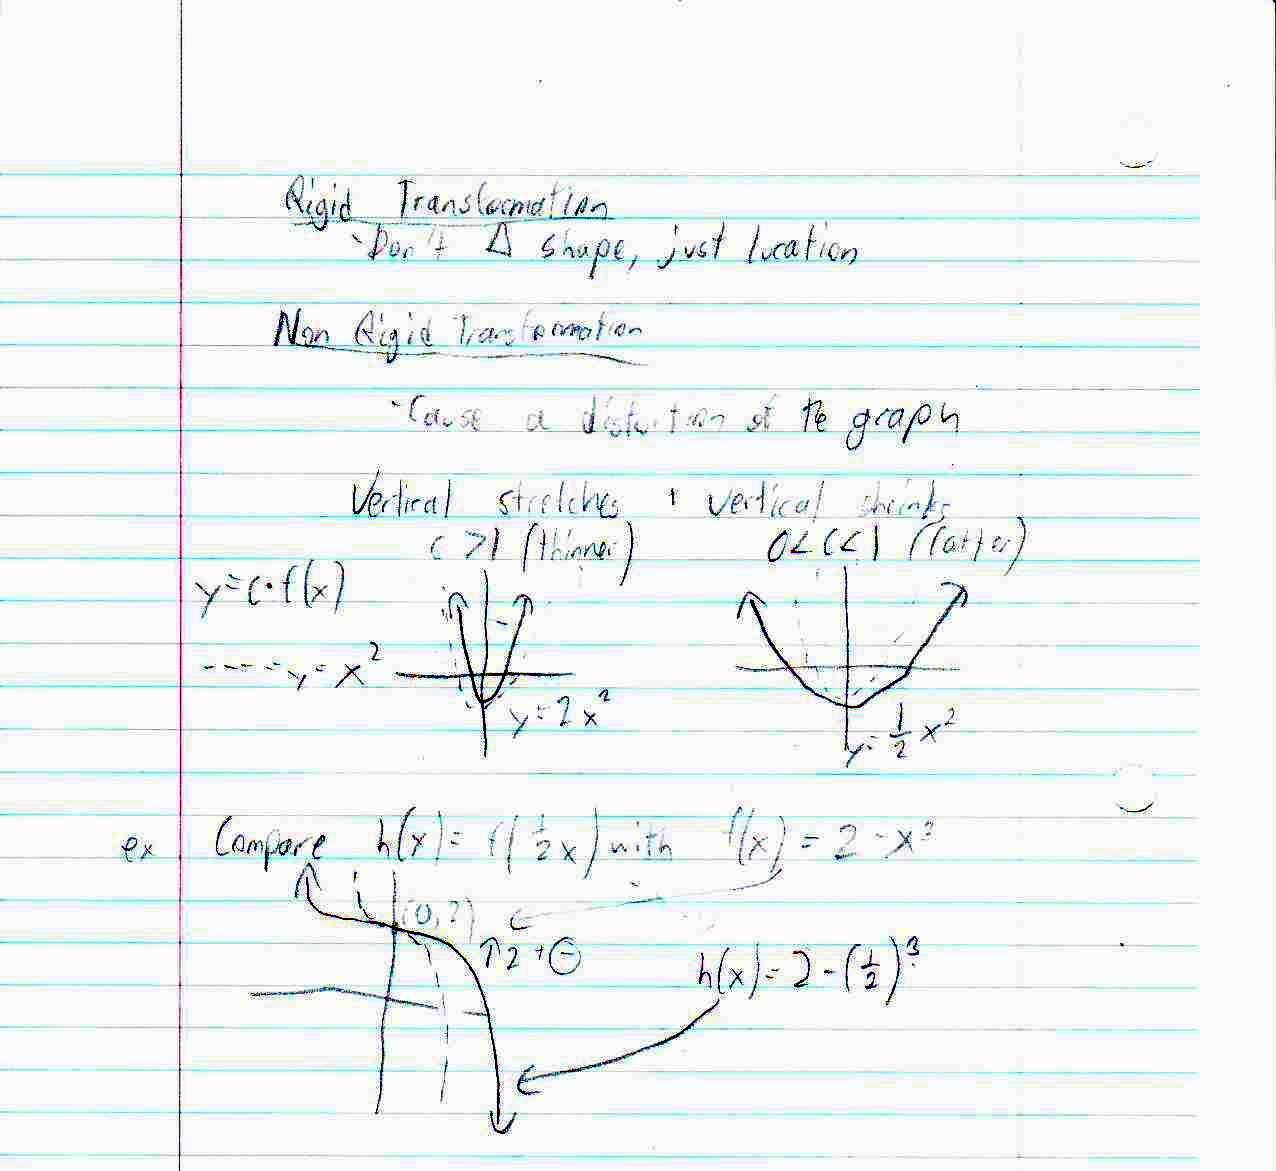 Rigid Transformation
- Don't Δ shape, just location
Non Rigid Transformation
- Cause a distortion of the graph
Vertical stretches + vertical shrinks
c > 1 (thinner) 0 < c < 1 (fatter)
y = c • f(x)
---- y = x²
y = 2x²
y = 1/2 x²
ex Compare h(x) = f(1/2 x) with f(x) = 2 - x³
(0, 2)
↑2 + ⊖
h(x) = 2 - (1/2)³